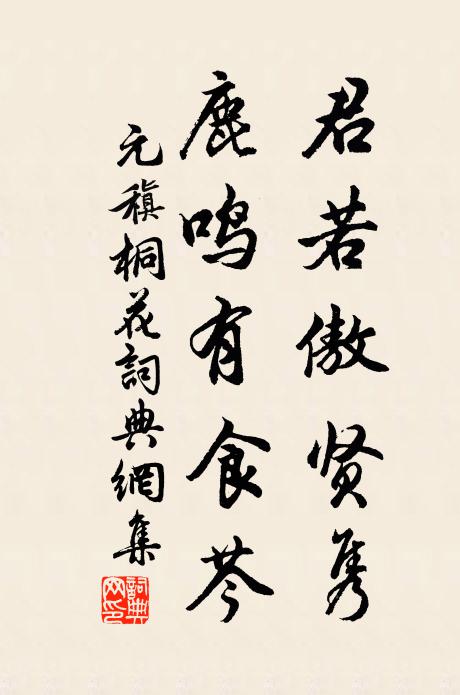 君若傲贤隽
鹿鸣有食芩
元稹桐花詞典網集
詞典网印